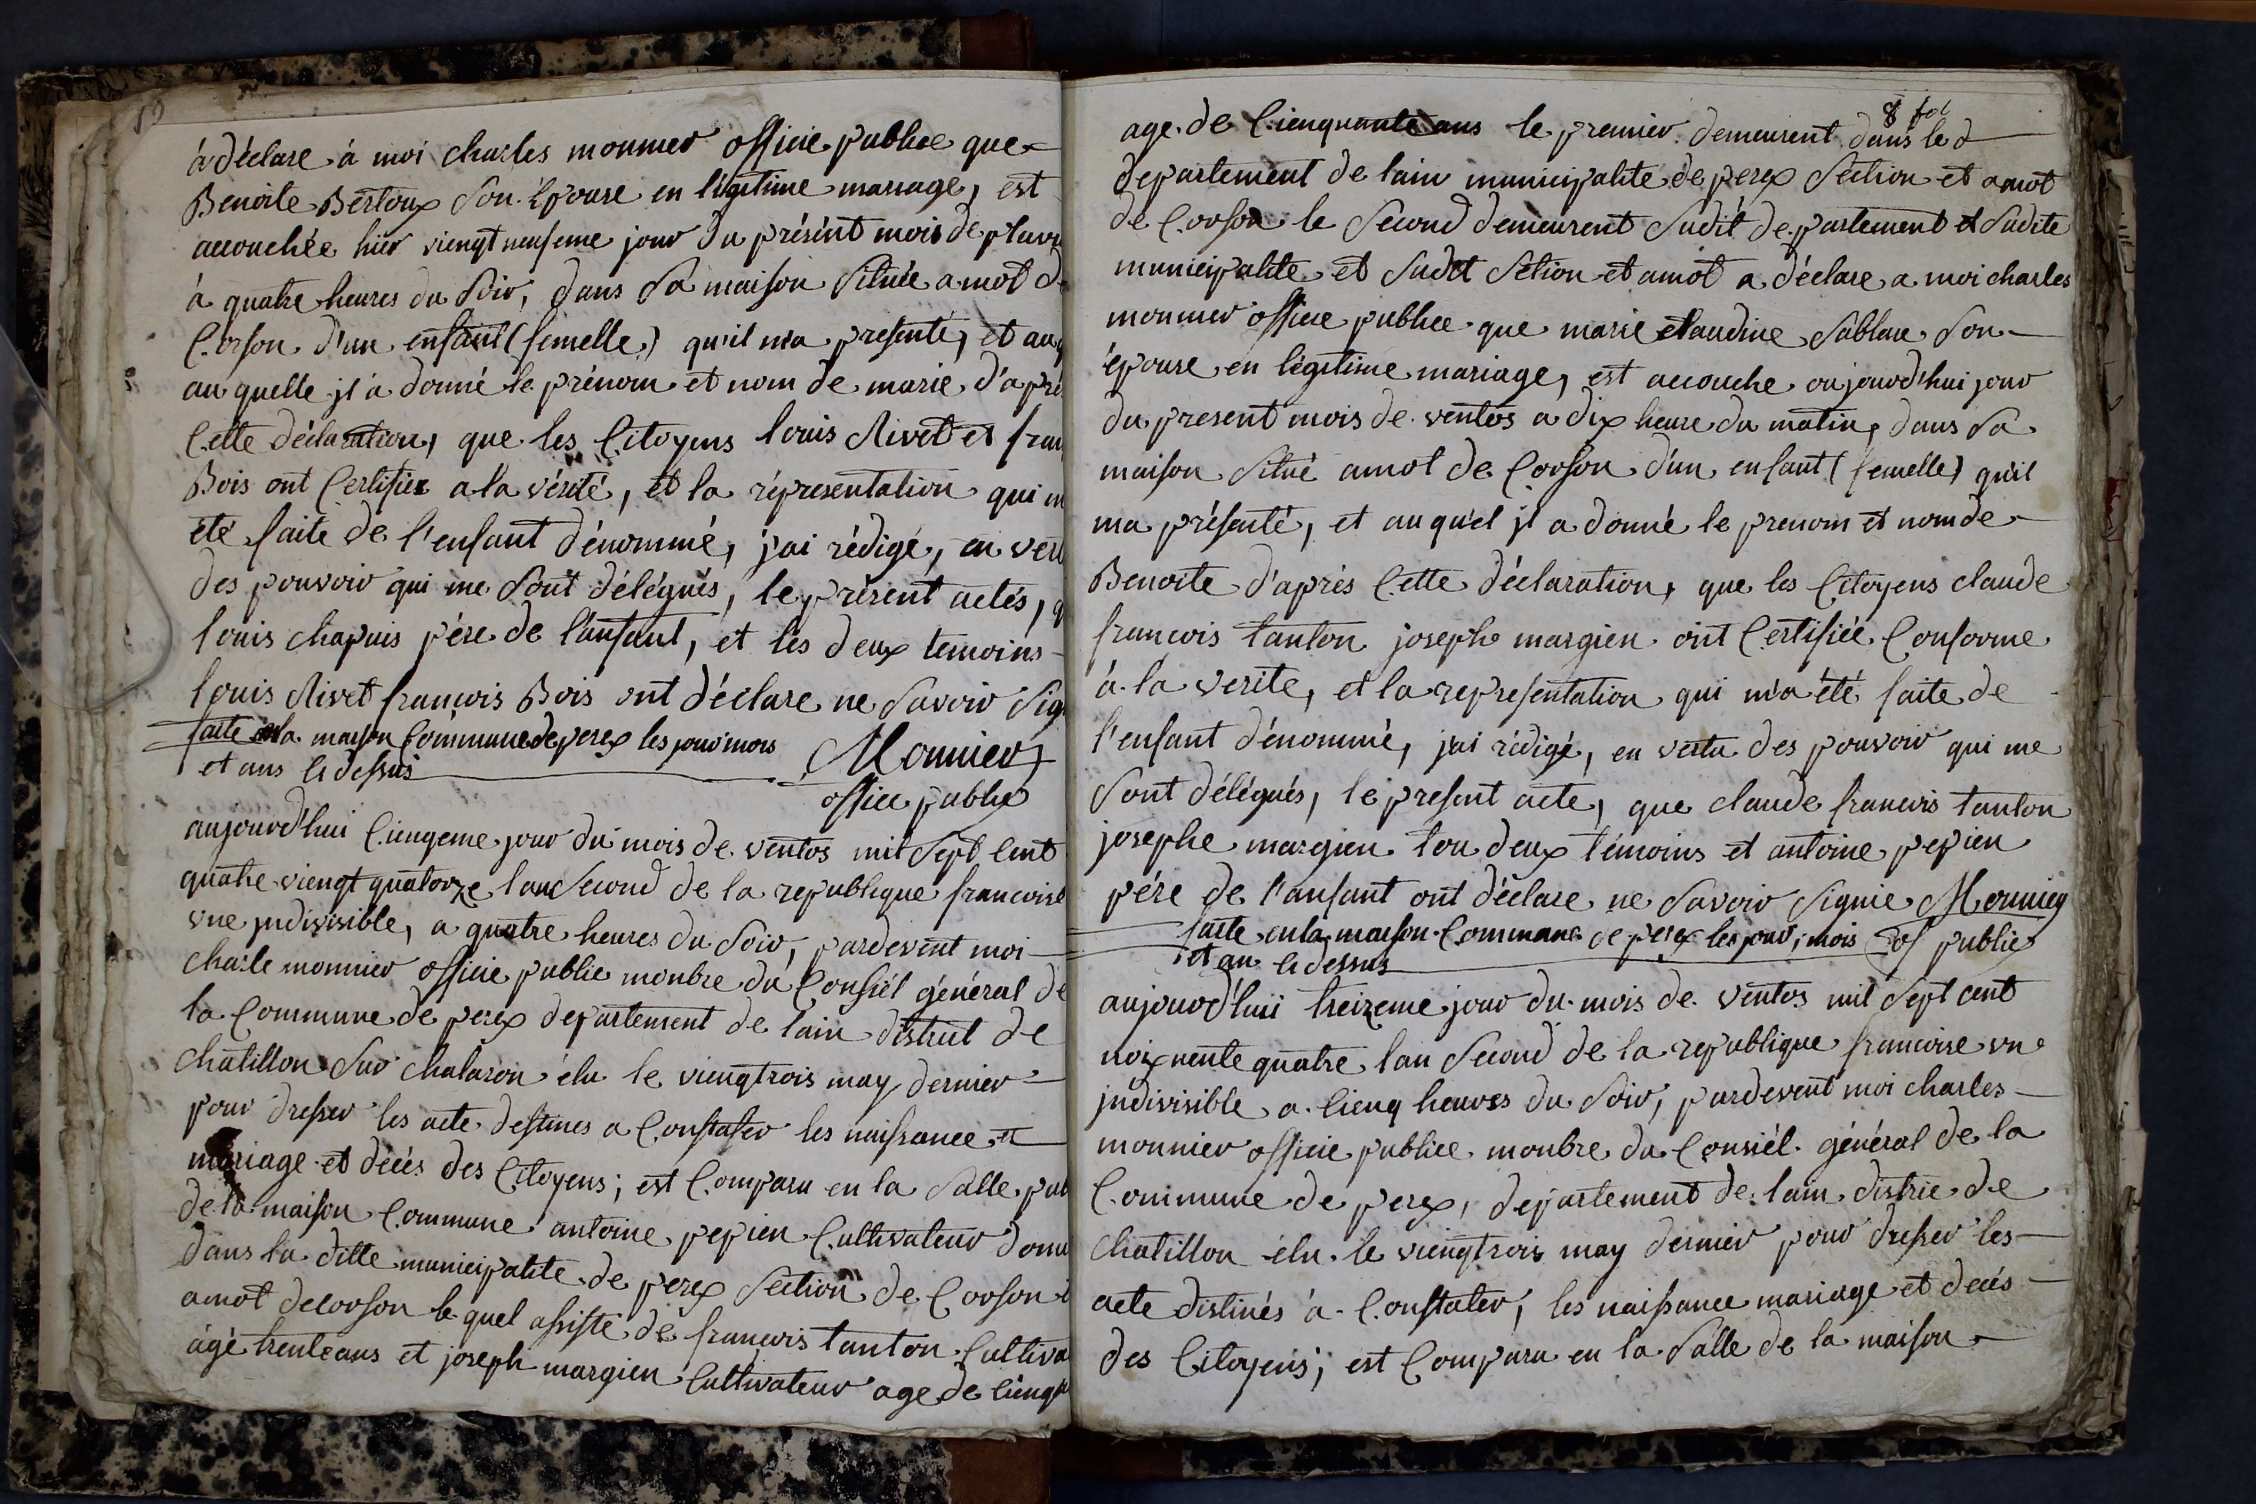 19
à déclare à moi charles monnier officie publice que
Benoite Bertoux son épouse en légitime mariage, est
accouchée hier viengt neufieme jour du présent mois de pluvi
à quatre heures du soir, dans sa maison située a mot d
Corson d'un enfant (femelle) qu'il m'a presenté, et au
au quelle jl a donné le prénom et nom de marie d'apré
Cette déclaration, que les Citoyens louis Rivet et fran
Bois ont Certifiee a la vérité, et la représentation qui m
été faite de l'enfant dénommé, j'ai rédigé, en vert
des pouvoir qui me sont délégués, le présent actes, q
louis chapuis pére de l'anfant, et les deux temoins
louis Rivet francois Bois ont déclare ne savoir sig
faite en la maison Commune de perex les jour mois
et ans ci dessus
Monnier
office publix
aujourd'hui Ciengeme jour du mois de ventos mil sept Cent
quatre viengt quatorze lan second de la republique francoise
vne jndivisible, a quatre heures du soir, pardevent moi
charle monnier officie publie monbre du Consiél général de
la Commune de perex departement de lain distrut de
chatillon sur chalaron élu le viengtrois may dernier
pour dresser les acte destines a Constater les naissance et
mariage et décés des Citoyens; est Comparu en la salle pub
de la maison Commune antoine pepien Cultivateur domi
dans la ditte municipalite de perex section de Corson
amot de corson le quel assiste de francois tanton Cultiva
âgé trente ans et joseph margien Cultivateur age de Cienqu
8 fol
age de Cienquante ans le premier demeurent dans le d
departement de lain municipalite de perex section et amot
de Corson le second demeurent sudit departement et sudite
municipalite et sudit section et amot a déclare a moi charles
monnier officie publice que marie claudine sablare son
épouse en légitime mariage, est accouche aujourd'hui jour
du present mois de ventos a dix heure du matin, dans sa
maison situé amot de Corson d'un enfant (femelle) qu'il
ma présenté, et au quel jl a donné le prenom et nom de
Benoite d'aprés Cette déclaration, que les Citoyens claude
francois tanton josephe margien ont Certifiée Conforme
à la verite, et la representation qui m'a été faite de
l'enfant dénommé, j'ai rédigé, en vertu des pouvoir qui me
sont délégués, le present acte, que claude francois tanton
josephe margien tou deux témoins et antoine pepien
pére de l'anfant ont déclare ne savoir signie Monnier
faite en la maison Commune de perex les jour, mois of publie
et an ci dessus
aujourd'hui treizeme jour du mois de ventos mil sept cent
noixnente quatre lan second de la republique francoise vne
jndivisible a Cienq heures du soir, pardevent moi charles
monnier officie publice monbre du Consiél général de la
Commune de perex, departement de lain distric de
chatillon élu le viengtrois may dernier pour dresser les
acte distinés à Constater, les naissance mariage et decés
des Citoyens; est Comparu en la salle de la maison